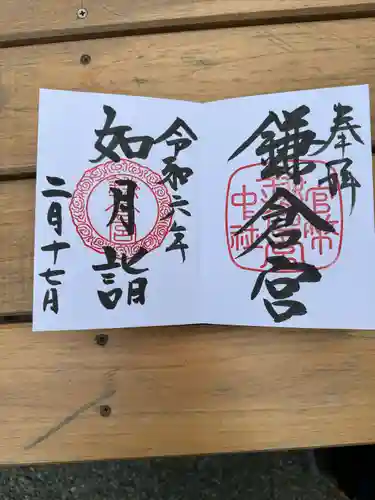 奉拝
鎌倉宮
官幣
中社
令和六年
如月詣
二月十七日